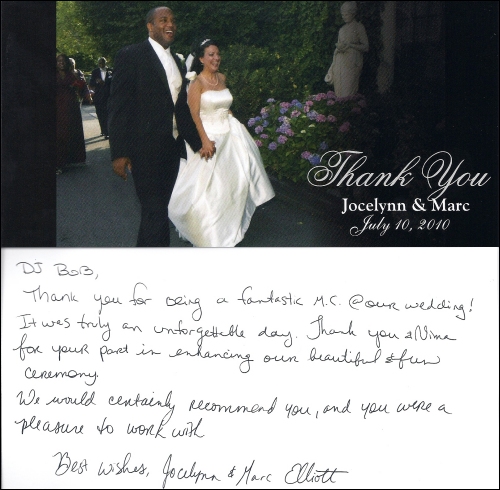 Thank You
Jocelynn & Marc
July 10, 2010
DJ BOB,
Thank you for being a fantastic M.C. @ our wedding!
It was truly an unforgettable day. Thank you & Nima
for your part in enhancing our beautiful & fun
ceremony.
We would certainly recommend you, and you were a
pleasure to work with
Best wishes, Jocelynn & Marc Elliott